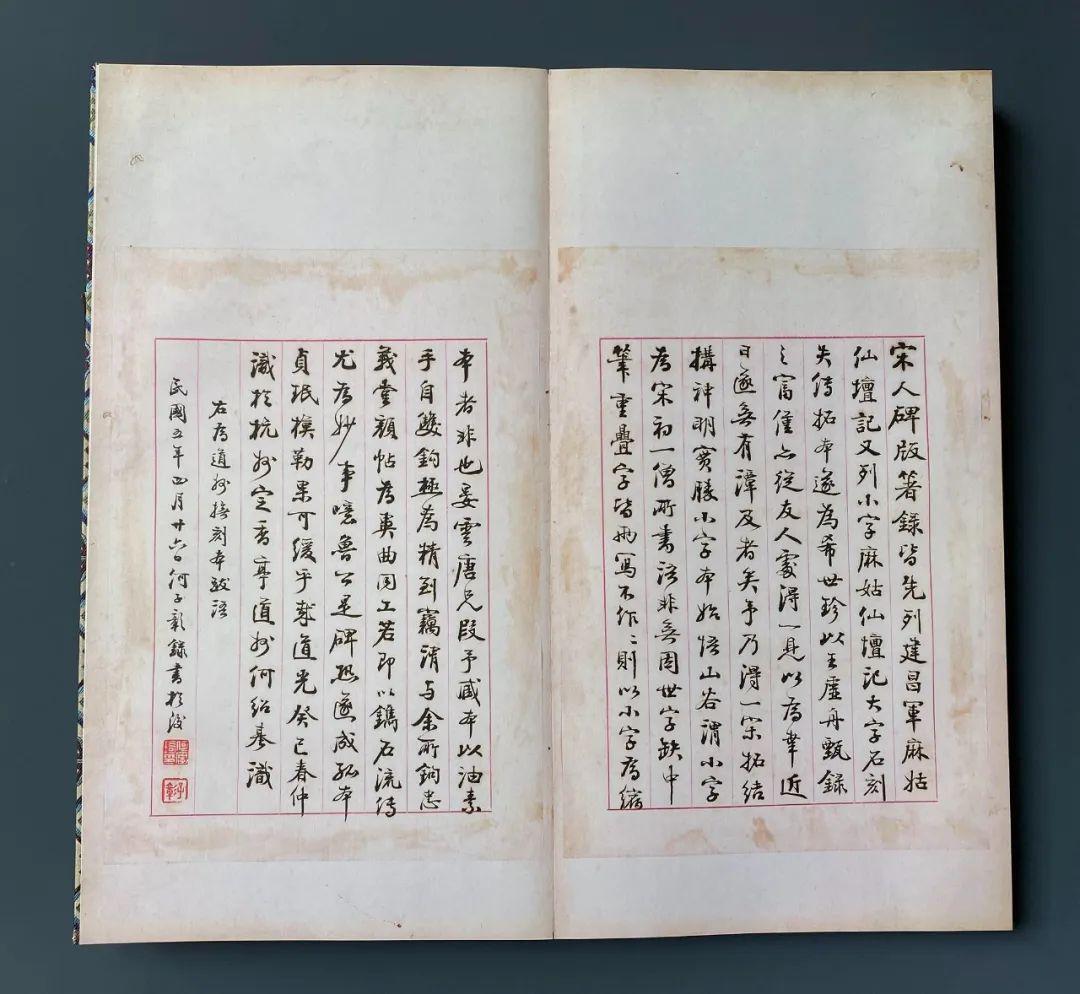 宋人碑版箸錄皆先列建昌軍麻姑
仙壇記又列小字麻姑仙壇記大字石刻
失傳拓本遂為希世珍以王虛舟甄錄
之富僅亦從友人處得一見以為輓近
日遂無有津及者矣予乃得一宋拓結
搆神明實勝小字本始悟山谷謂小字
為宋初一僧所書語非無因世字缺中
筆重疊字皆兩寫不作〻則以小字為縮
本者非也晏雲唐兄叚予臧本以油素
手自雙鉤極為精到竊謂與余所鉤忠
義堂顏帖為異曲同工若即以鐫石流傳
尤為妙事噫魯公是碑恐遂成孤本
貞珉橅勒果可緩乎哉道光癸巳春仲
識於杭州定香亭道州何紹基識
右為道州橅刻本跋語
民國五年四月廿六日何子彰錄書於後